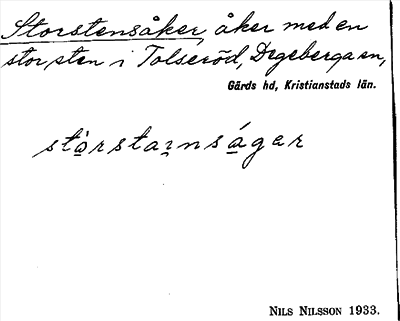 Storstensåker, åker med en
stor sten i Tolseröd, Degeberga sn,
Gärds hd, Kristianstads län.
stòrstaınság​ar
NILS NILSSON 1933.